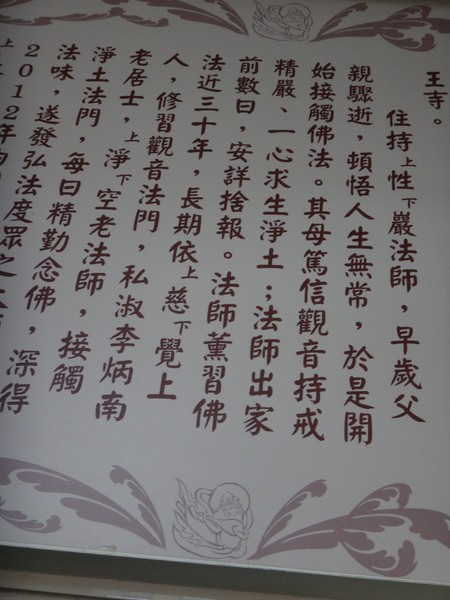 王寺。
住持上性下巖法師，早歲父
親驟逝，頓悟人生無常，於是開
始接觸佛法。其母篤信觀音持戒
精嚴、一心求生淨土；法師出家
前數日，安詳捨報。法師薰習佛
法近三十年，長期依上慈下覺上
人，修習觀音法門，私淑李炳南
老居士，上淨下空老法師，接觸
淨土法門，每日精勤念佛，深得
法味，遂發弘法度眾之
2012年